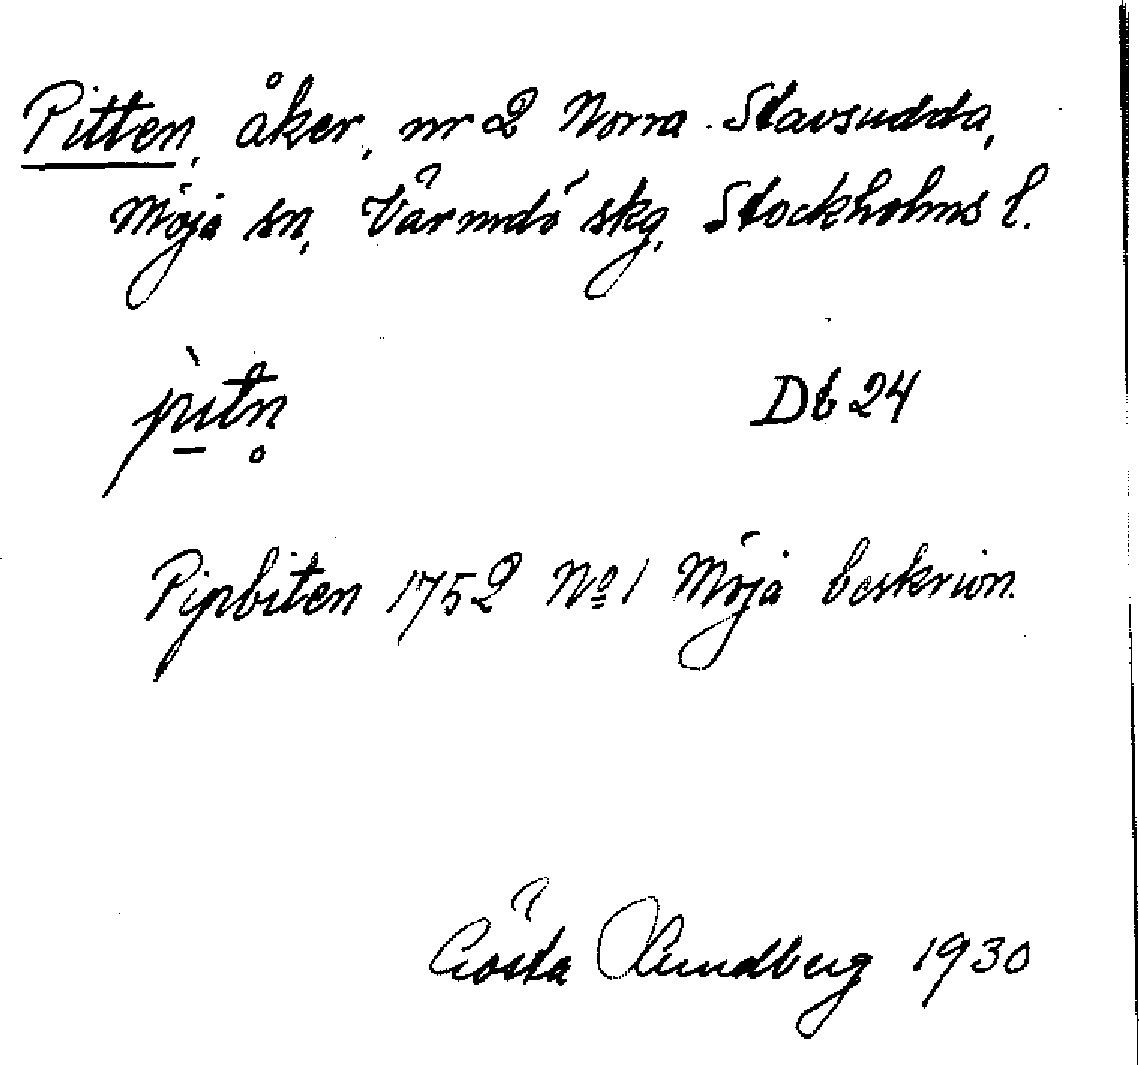 Pitten, åker, nr 2 Norra Stavsudda,
Möja sn, Värmdö skg, Stockholms l.
pìtn̥ Db 24
Pipbiten 1752 No 1 Möja beskrivn.
Gösta Lundberg 1930